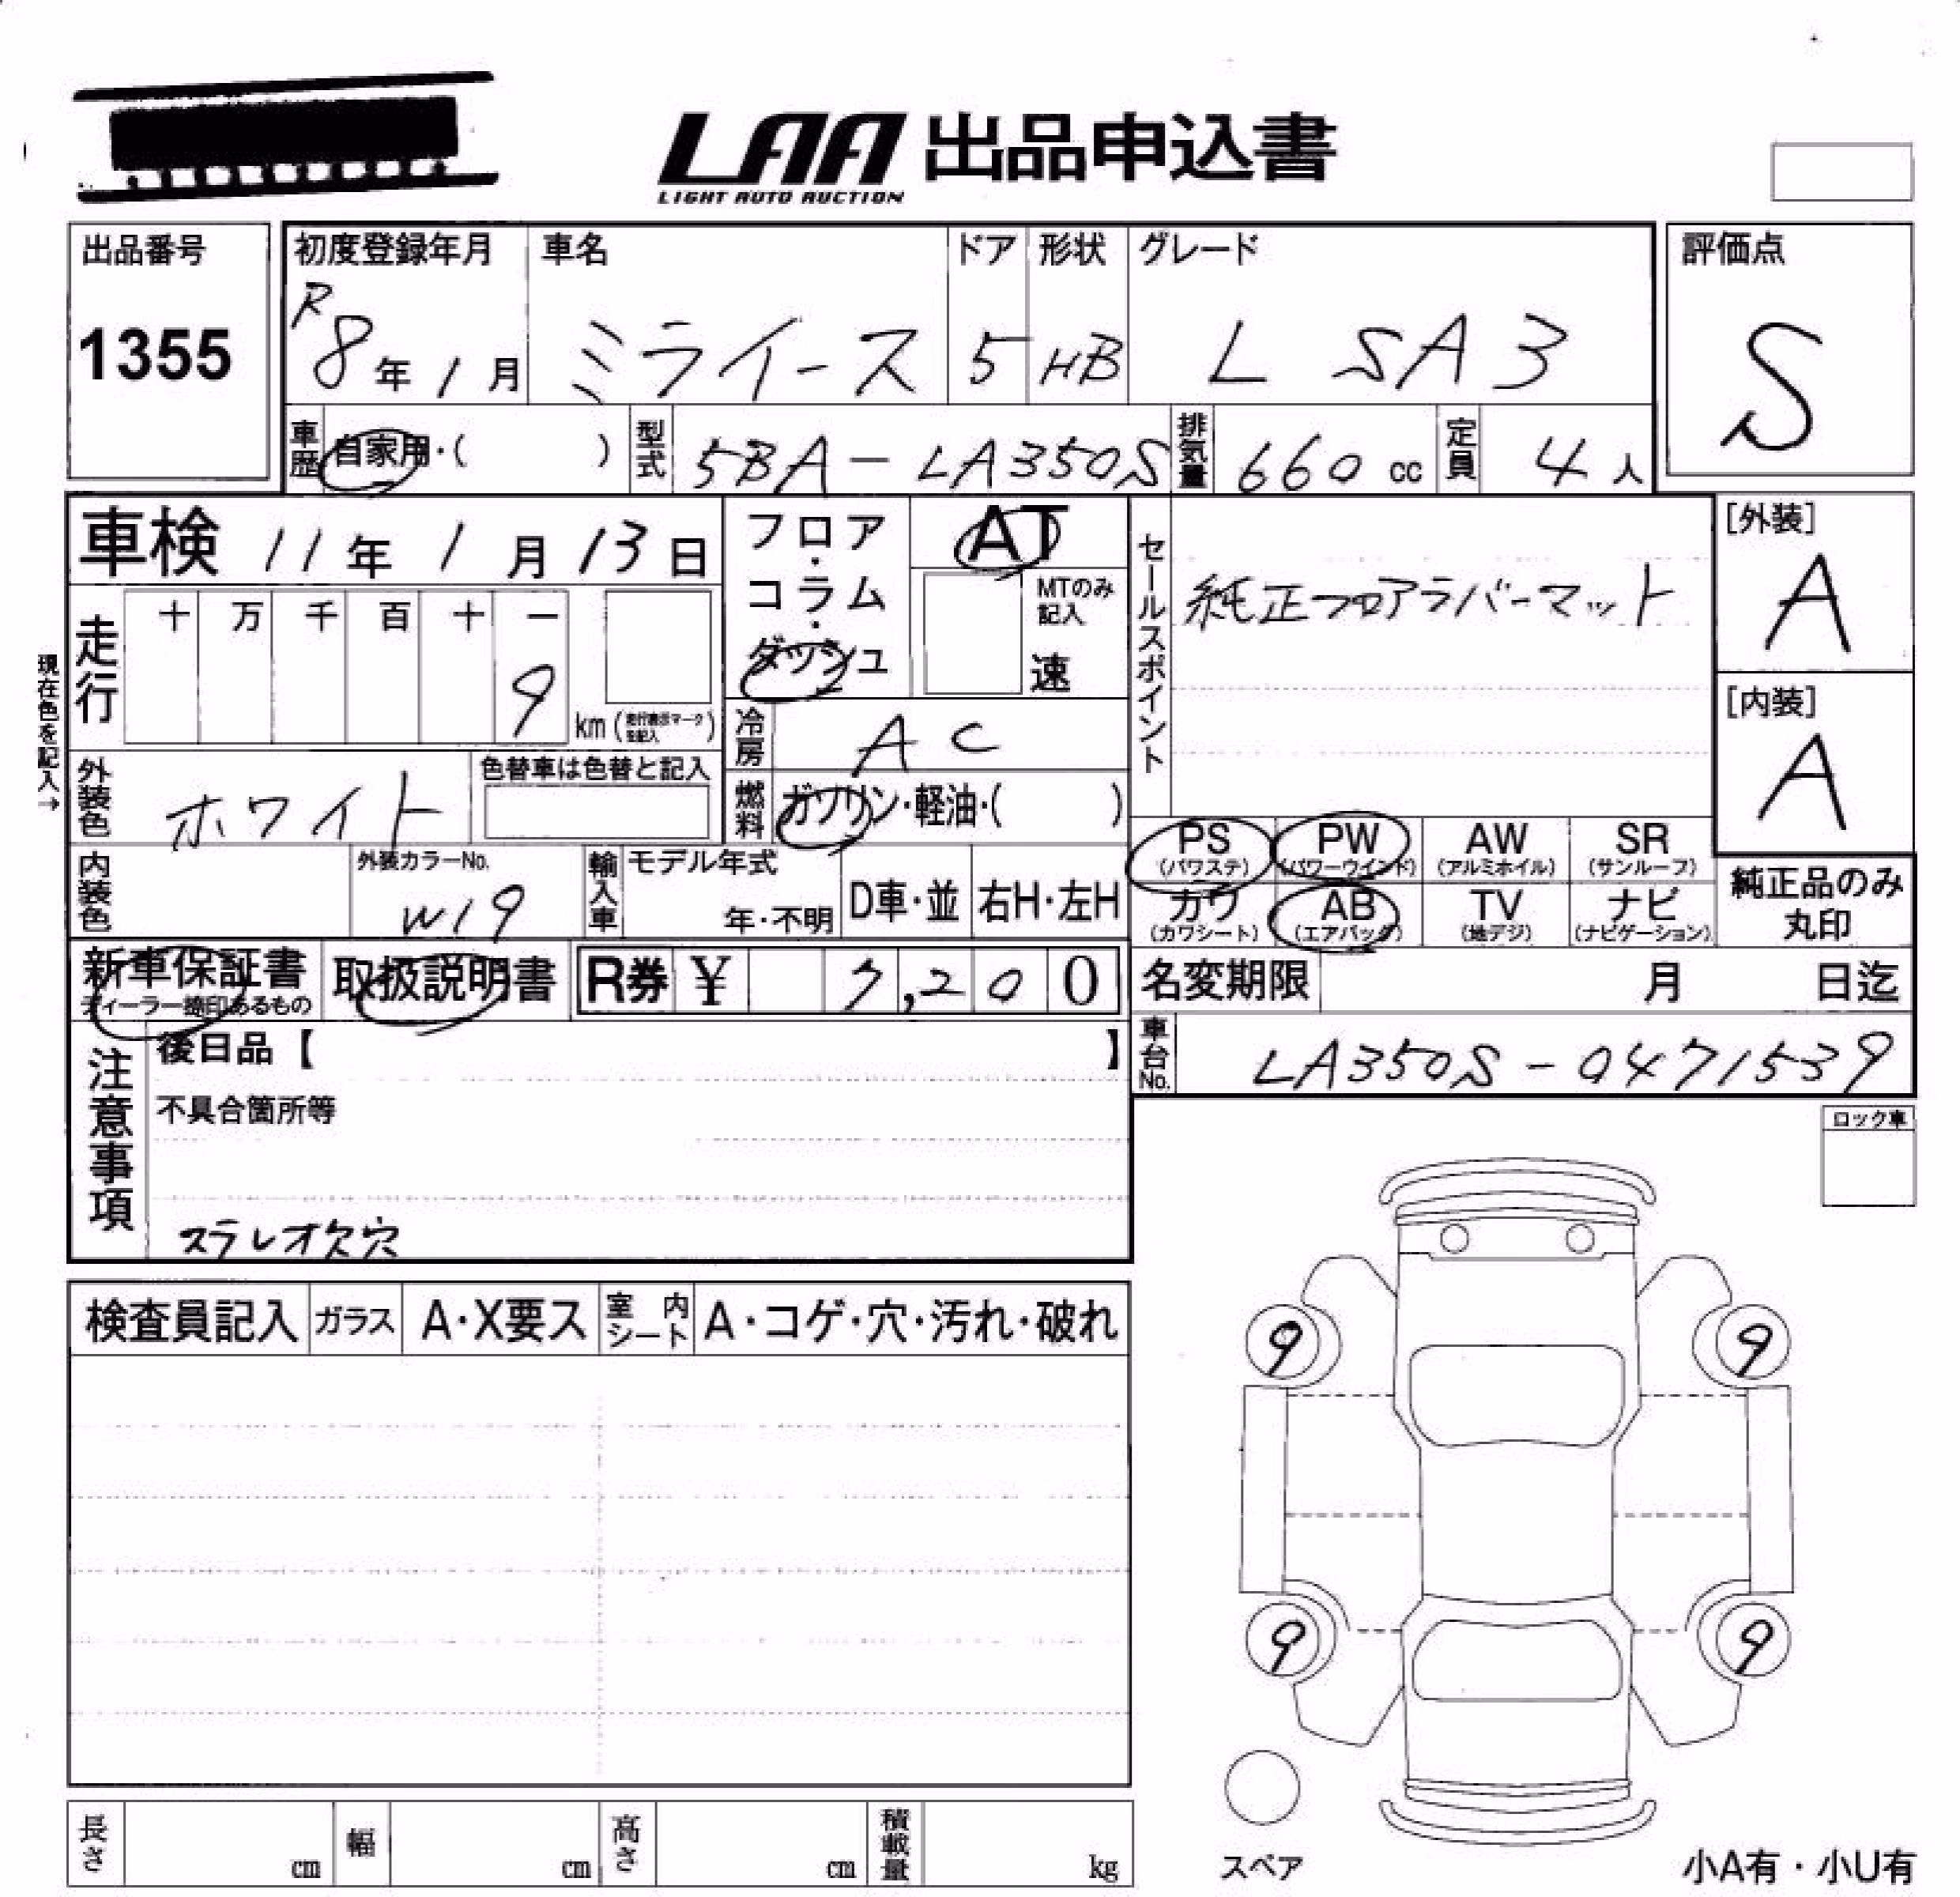 LAA 出品申込書
LIGHT AUTO AUCTION
出品番号
1355
初度登録年月
R8年1月
車名
ミライース
ドア
5
形状
HB
グレード
L SA3
評価点
S
車歴 自家用・( )
型式 5BA-LA350S
排気量 660 cc
定員 4人
車検 11年1月13日
フロア・コラム・ダッシュ
AT
MTのみ記入
速
セールスポイント
純正フロアラバーマット
[外装]
A
[内装]
A
現在色を記入→
走行
十 万 千 百 十 一
9
km (走行表示マークを記入)
冷房 AC
外装色 ホワイト
色替車は色替と記入
燃料 ガソリン・軽油・( )
内装色
外装カラーNo.
W19
輸入車
モデル年式
年・不明
D車・並
右H・左H
PS (パワステ)
PW (パワーウインド)
AW (アルミホイル)
SR (サンルーフ)
カワ (カワシート)
AB (エアバッグ)
TV (地デジ)
ナビ (ナビゲーション)
純正品のみ
丸印
新車保証書
ディーラー捺印あるもの
取扱説明書
R券 ¥ 7,200
名変期限 月 日迄
車台No. LA350S-0471539
注意事項
後日品【 】
不具合箇所等
ステレオ欠穴
ロック車
検査員記入
ガラス
A・X要ス
室内シート
A・コゲ・穴・汚れ・破れ
9
9
9
9
長さ cm
幅 cm
高さ cm
積載量 kg
スペア
小A有・小U有